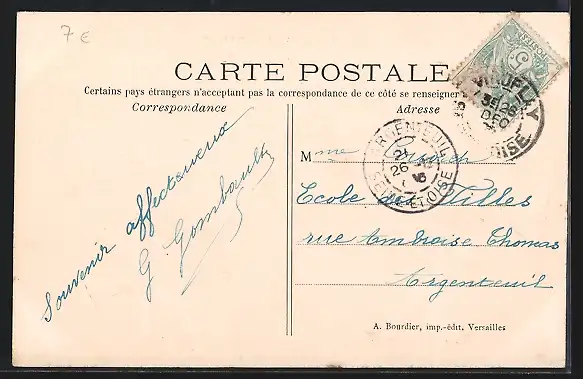 7 €
CARTE POSTALE
Certains pays étrangers n'acceptant pas la correspondance de ce côté se renseigner
Correspondance
Adresse
VIROFLAY
3E 25
DEC
OISE
ARGENTEUIL
26
SEINE-ET-OISE
Mme
Ecole des Filles
rue Ambroise Thomas
Argenteuil
Souvenir affectueux
G Gombault
A. Bourdier, imp.-édit. Versailles